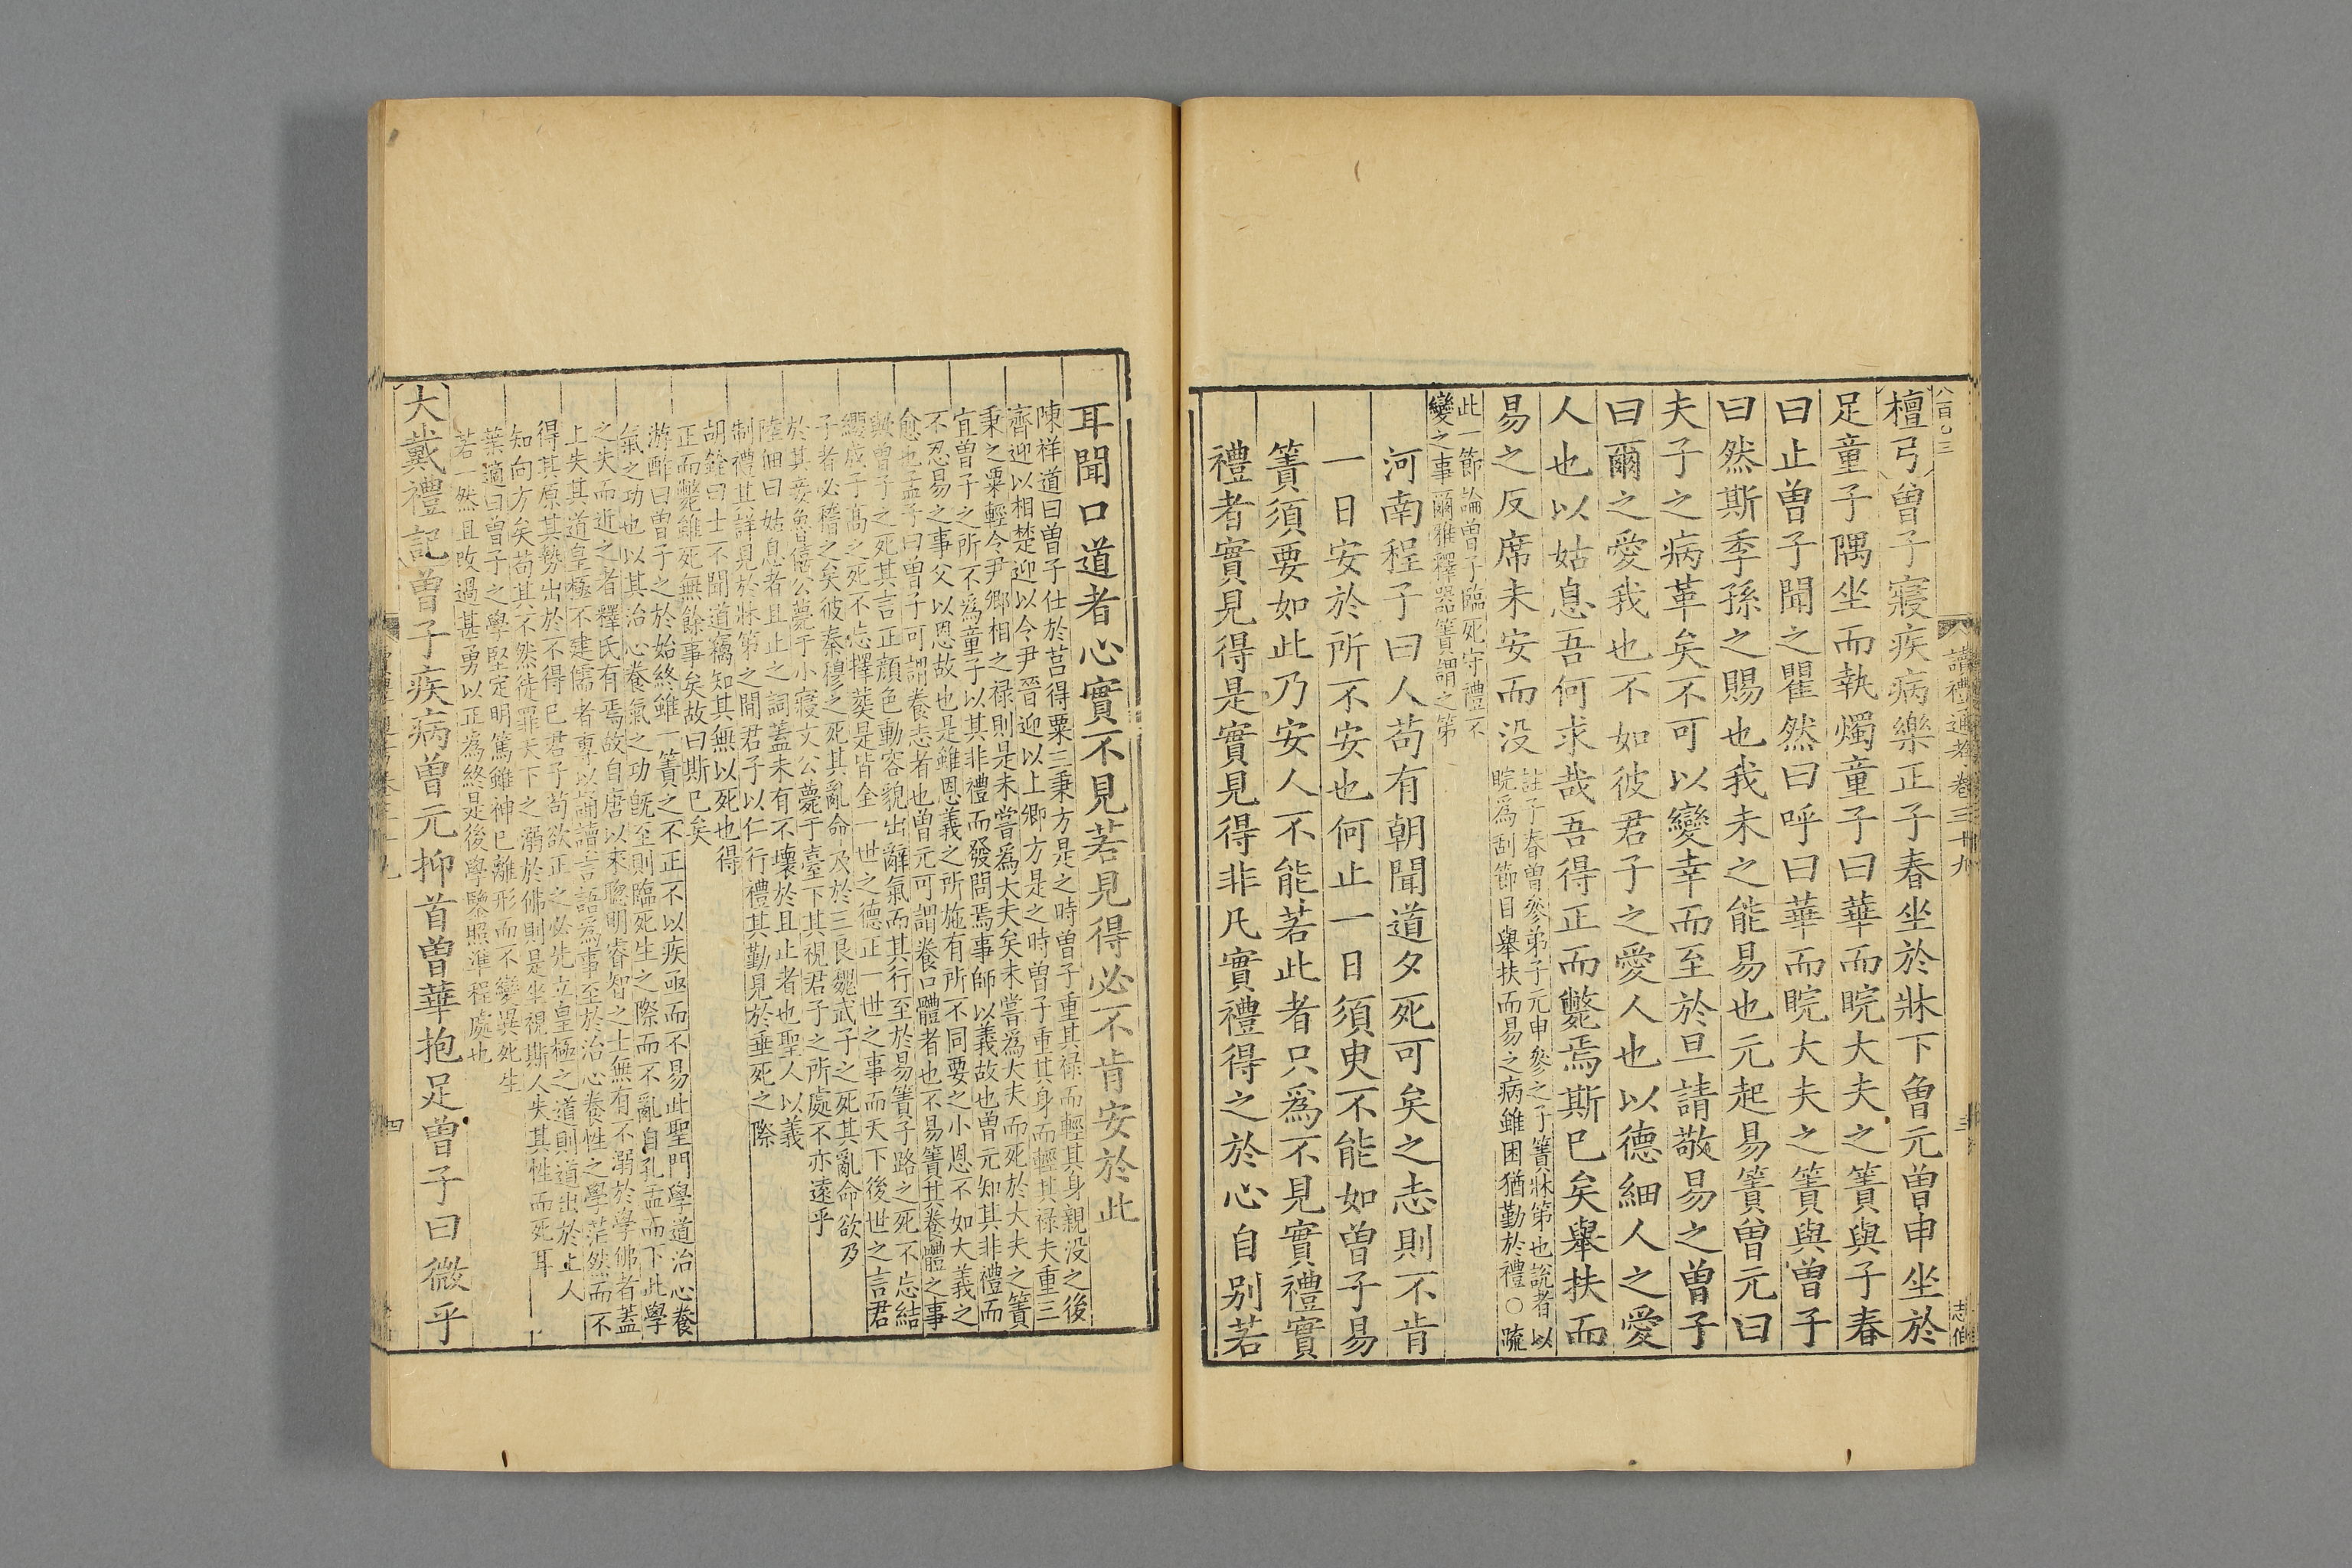 檀弓曾子寢疾病樂正子春坐於牀下曾元曾申坐於
足童子隅坐而執燭童子曰華而睆大夫之簀與子春
曰止曾子聞之瞿然曰呼曰華而睆大夫之簀與曾子
曰然斯季孫之賜也我未之能易也元起易簀曾元曰
夫子之病革矣不可以變幸而至於旦請敬易之曾子
曰爾之愛我也不如彼君子之愛人也以德細人之愛
人也以姑息吾何求哉吾得正而斃焉斯已矣舉扶而
易之反席未安而没
註子春曾參弟子元申參之子簀牀第也說者以
睆爲刮節目舉扶而易之病雖困猶勤於禮○疏
此一節論曾子臨死守禮不
變之事爾雅釋器簀謂之第
河南程子曰人苟有朝聞道夕死可矣之志則不肯
一日安於所不安也何止一日須臾不能如曾子易
簀須要如此乃安人不能若此者只爲不見實禮實
禮者實見得是實見得非凡實禮得之於心自别若
讀禮通考卷三十九
三
耳聞口道者心實不見若見得必不肯安於此
陳祥道曰曾子仕於莒得粟三秉方是之時曾子重其禄而輕其身親没之後
齊迎以相楚迎以令尹晉迎以上卿方是之時曾子重其身而輕其禄夫重三
秉之粟輕令尹卿相之禄則是未嘗爲大夫矣未嘗爲大夫而死於大夫之簀
宜曾子之所不爲童子以其非禮而發問焉事師以義故也曾元知其非禮而
不忍易之事父以恩故也是雖恩義之所施有所不同要之小恩不如大義之
愈也孟子曰曾子可謂養志者也曾元可謂養口體者也不易簀其養體之事
與曾子之死其言正顔色動容貌出辭氣而其行至於易簀子路之死不忘結
纓成子高之死不忘擇葬是皆全一世之德正一世之事而天下後世之言君
子者必稽之矣彼秦穆之死其亂命及於三良魏武子之死其亂命欲乃
於其妾魯僖公薨于小寢文公薨于臺下其視君子之所處不亦遠乎
陸佃曰姑息者且止之詞蓋未有不壞於且止者也聖人以義
制禮其詳見於牀第之間君子以仁行禮其勤見於垂死之際
胡銓曰士不聞道竊知其無以死也得
正而斃雖死無餘事矣故曰斯已矣
游酢曰曾子之於始終雖一簀之不正不以疾亟而不易此聖門學道治心養
氣之功也以其治心養氣之功旣至則臨死生之際而不亂自孔孟而下此學
之失而近之者釋氏有焉故自唐以來聰明睿智之士無有不溺於學佛者蓋
上失其道皇極不建儒者專以誦讀言語爲事至於治心養性之學茫然而不
得其原其勢出於不得已君子苟欲正之必先立皇極之道則道出於上人
知向方矣苟其不然徒罪天下之溺於佛則是坐視斯人失其性而死耳
葉適曰曾子之學堅定明篤雖神已離形而不變異死生
若一然且改過甚勇以正爲終是後學鑒照準程處也
大戴禮記曾子疾病曾元抑首曾華抱足曾子曰微乎
四